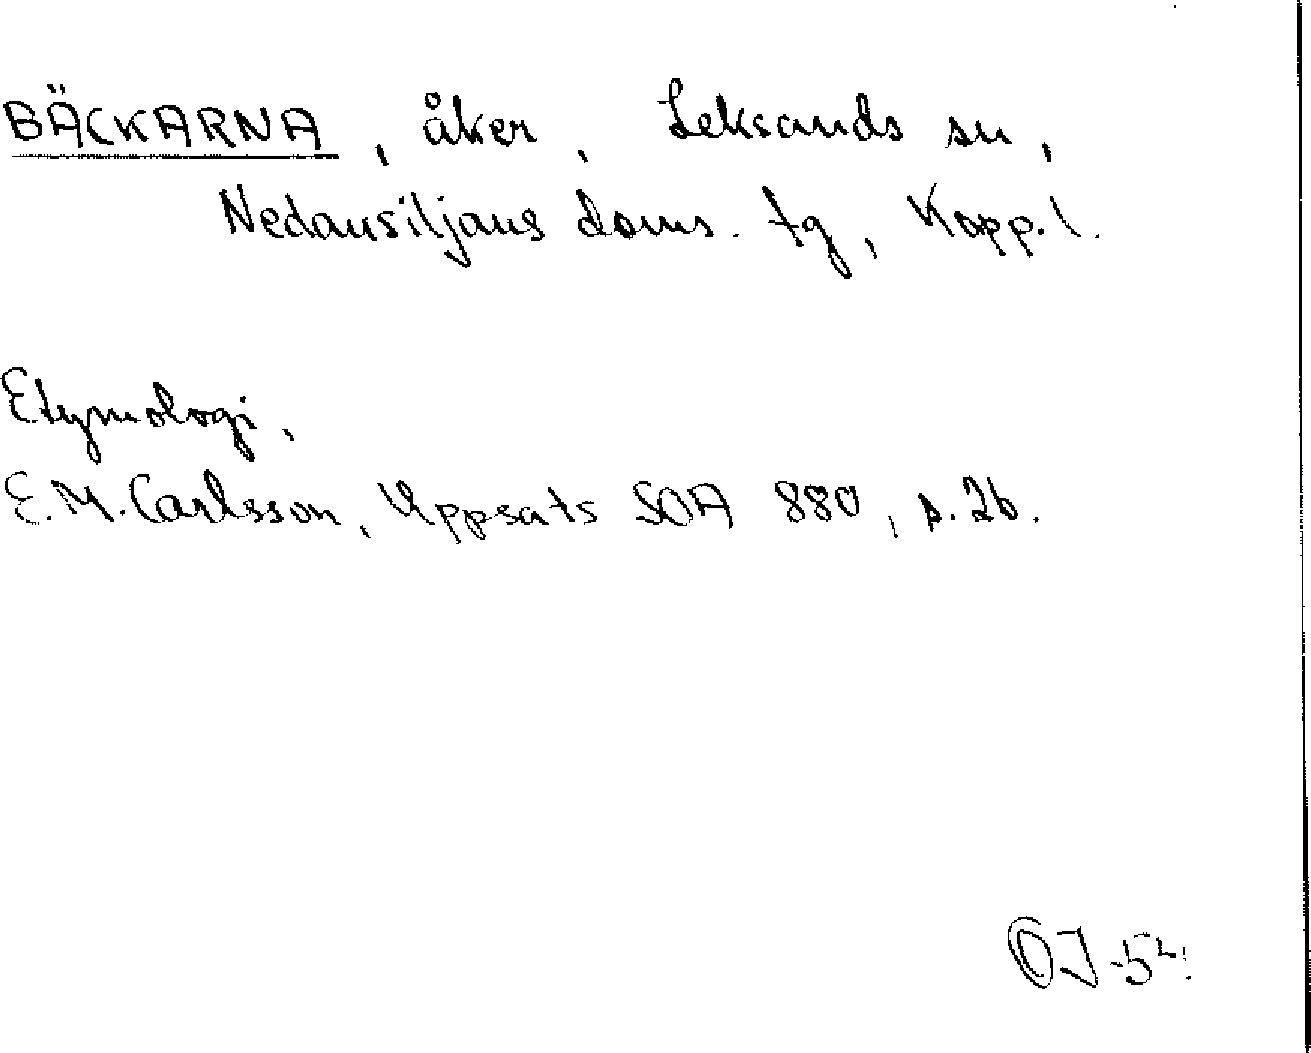 BÄCKARNA, åker, Leksands sn,
Nedansiljans doms. tg, Kopp. l.
Etymologi,
E.M. Carlsson, Uppsats SOA 880, s. 26.